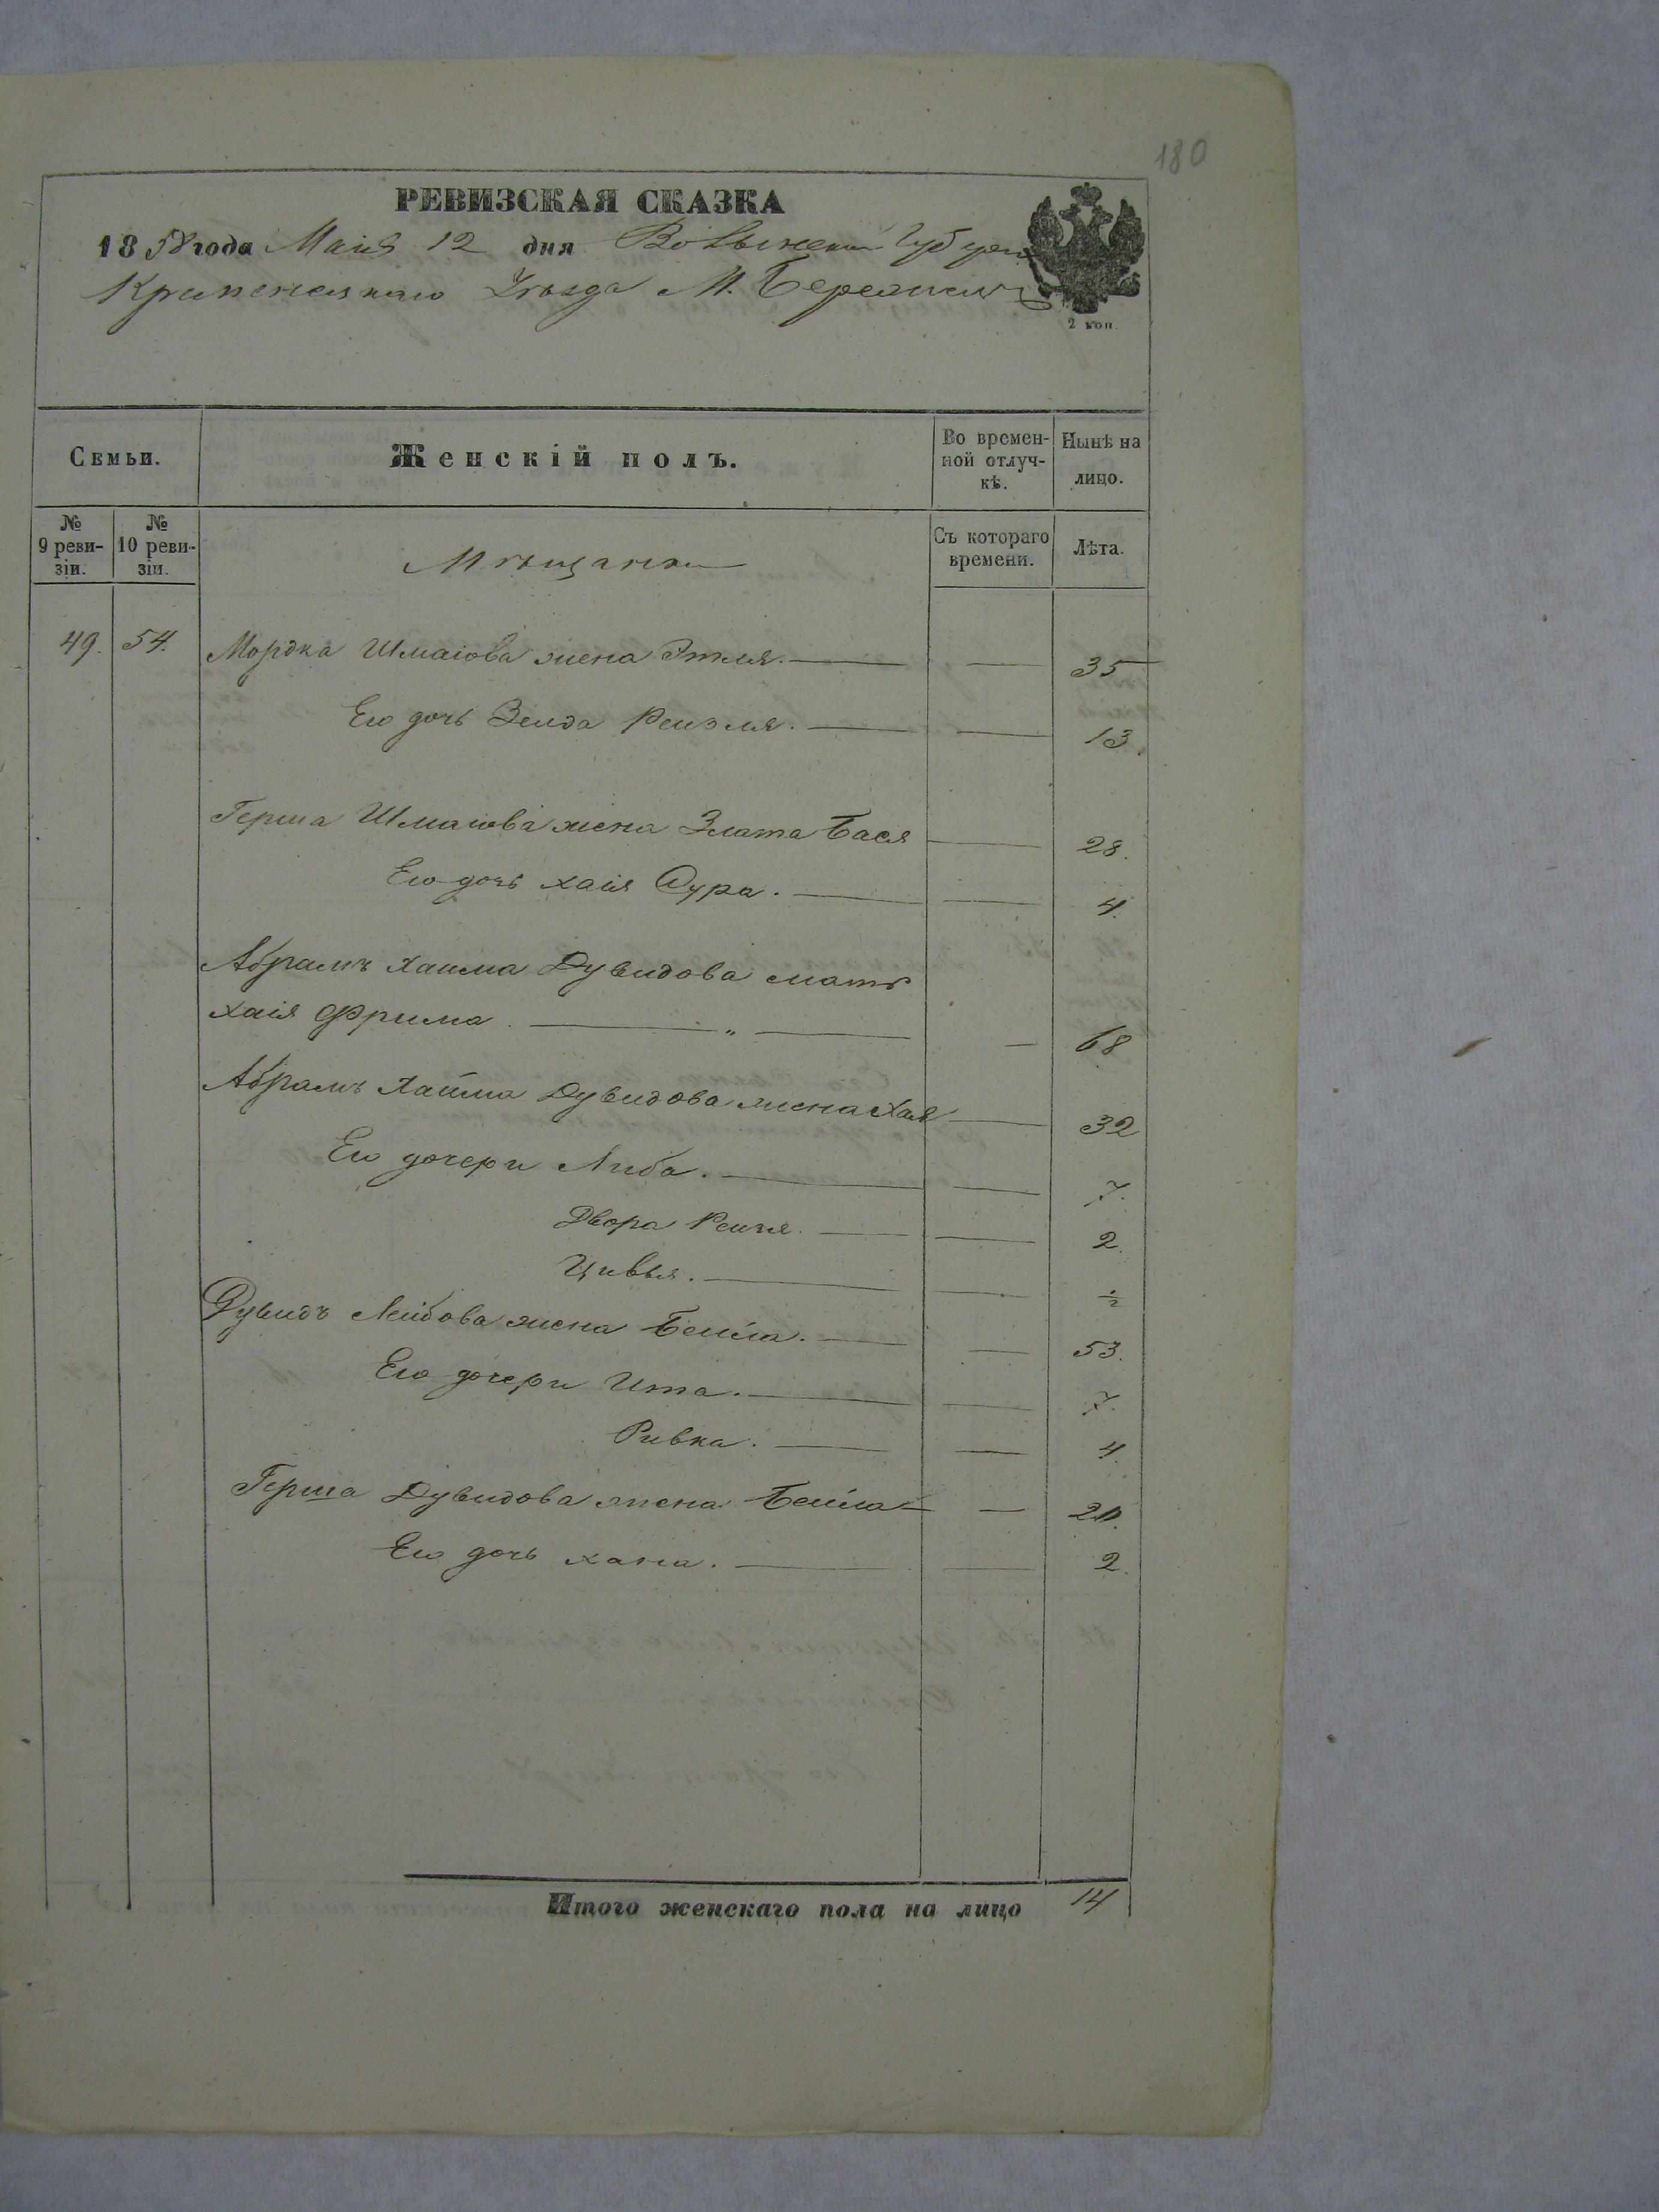 180
РЕВИЗСКАЯ СКАЗКА
1858 года Маія 12 дня Волынской Губерніи
Кременецкаго Уезда М. Бережецъ
2 коп.
Семьи. Женскій полъ. Во времен-ной отлуч-кѣ. Нынѣ на лицо.
№ 9 реви-зіи. № 10 реви-зіи. Мѣщане Съ котораго времени. Лѣта.
49. 54. Мордка Шмаіова жена Этля. — — 35
Его дочь Зелда Рейзля. — — 13.
Герша Шмаіова жена Злата Бася — 28.
Его дочь Хаія Сура. — — 4.
Абрамъ Хаима Дувидова мать
Хаія Фрима. — " — — 68
Абрамъ Хаима Дувидова жена Хая — 32
Его дочери Либа. — — 7.
Двора Рейзя. — — 2.
Цивья. — — ½
Дувидъ Лейбова жена Бейла. — — 53.
Его дочери Ита. — — 7.
Ривка. — — 4.
Герша Дувидова жена Бейла — — 20.
Его дочь Хана. — — 2.
Итого женскаго пола на лицо 14